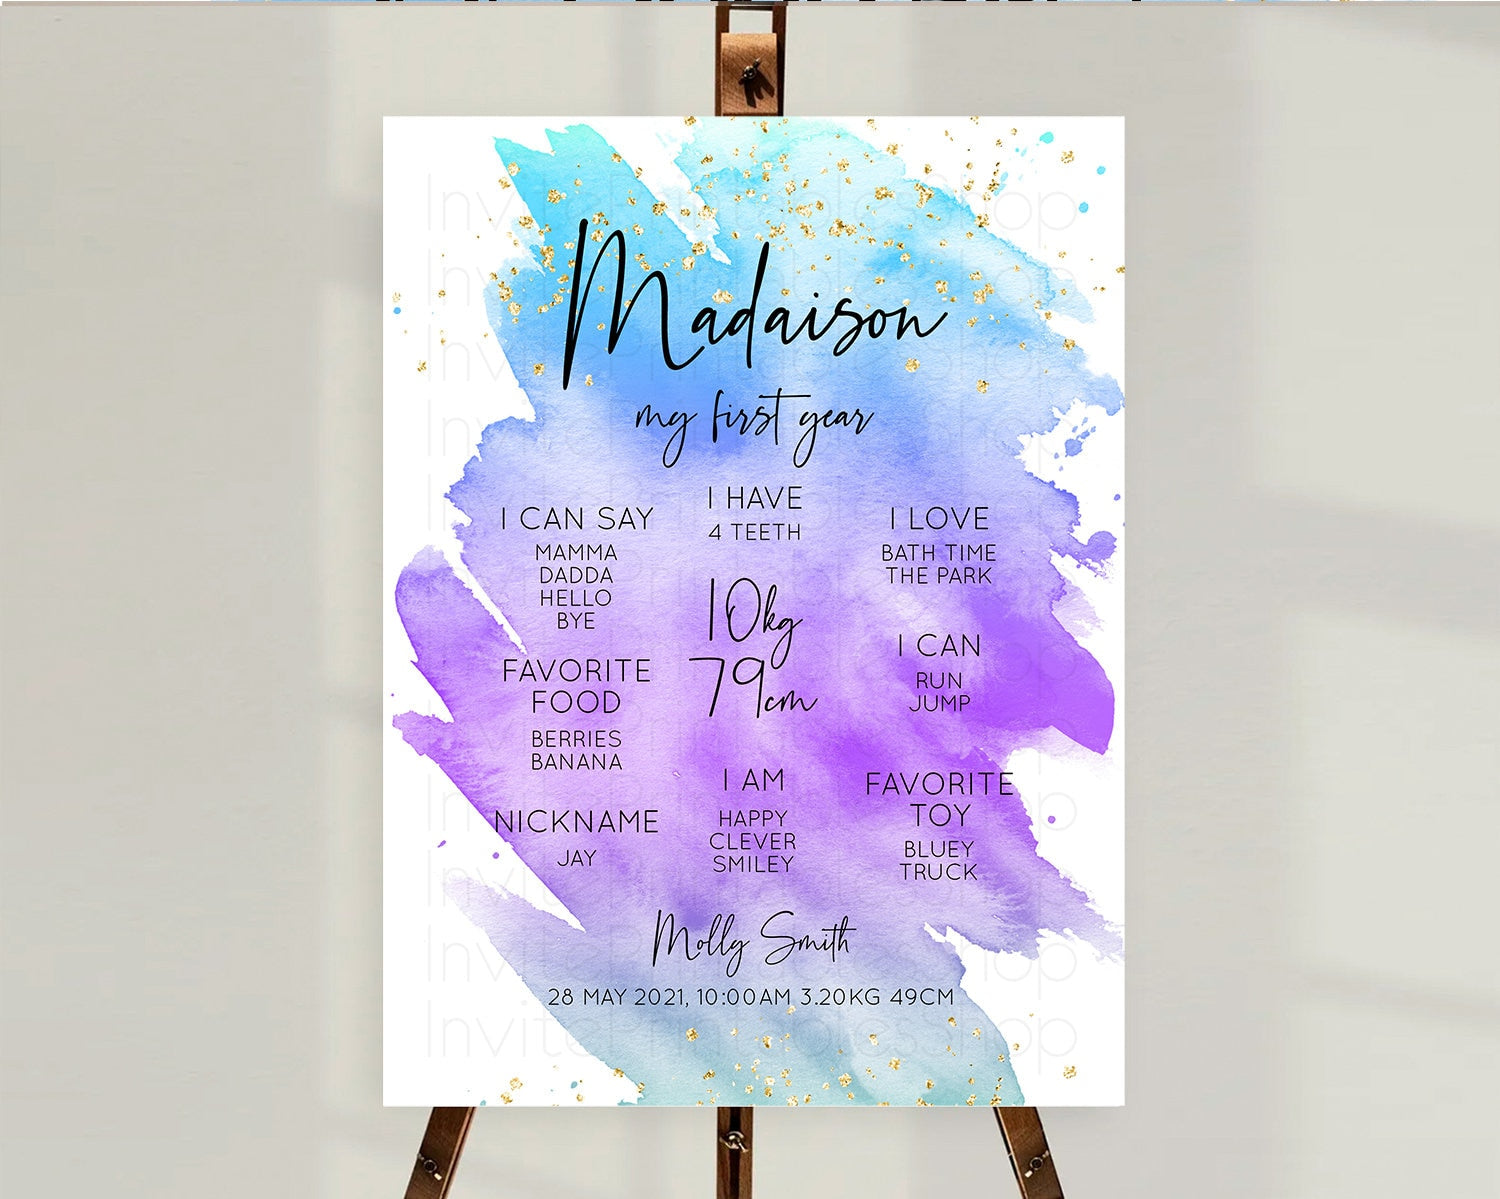 Madaison
my first year
I HAVE
4 TEETH
I CAN SAY
MAMMA
DADDA
HELLO
BYE
I LOVE
BATH TIME
THE PARK
10kg
79cm
I CAN
RUN
JUMP
FAVORITE
FOOD
BERRIES
BANANA
I AM
HAPPY
CLEVER
SMILEY
FAVORITE
TOY
BLUEY
TRUCK
NICKNAME
JAY
Molly Smith
28 MAY 2021, 10:00AM 3.20KG 49CM
InvitePrintablesShop
InvitePrintablesShop
InvitePrintablesShop